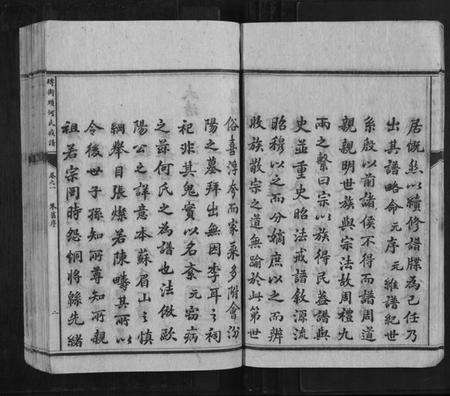 居慨然以續修譜牒為己任乃
出其譜略命元序元維譜紀世
系殷以前諸侯不得而譜周道
親親明世族與宗法故周禮九
兩之繫曰宗以族得民蓋譜與
史並重史昭法戒譜敘源流
昭穆以之而分嫡庶以之而辨
收族散宗之道無諭於此第世
俗喜浮夸而家乘多附會汾
陽之墓拜出無因李耳之祠
祀非其鬼實以名紊元竊病
之茲何氏之為譜也法傚歐
陽公之詳意本蘇眉山之慎
綱舉目張燦若陳疇其所以
令後世子孫知所尊知所親
祖若宗罔時怨恫將緜先緒
碑街頭何氏成譜
卷之一
朱舊序
二